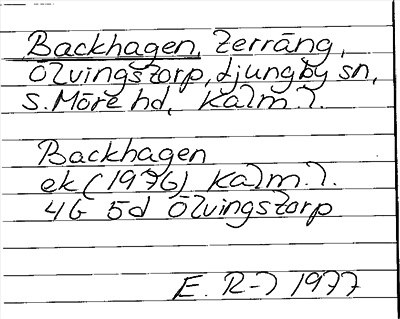 Backhagen, Terräng,
Ölvingstorp, Ljungby sn,
S. Möre hd, Kalm. l.
Backhagen
ek (1976) Kalm. l.
4G 5d Ölvingstorp
E. R-l 1977